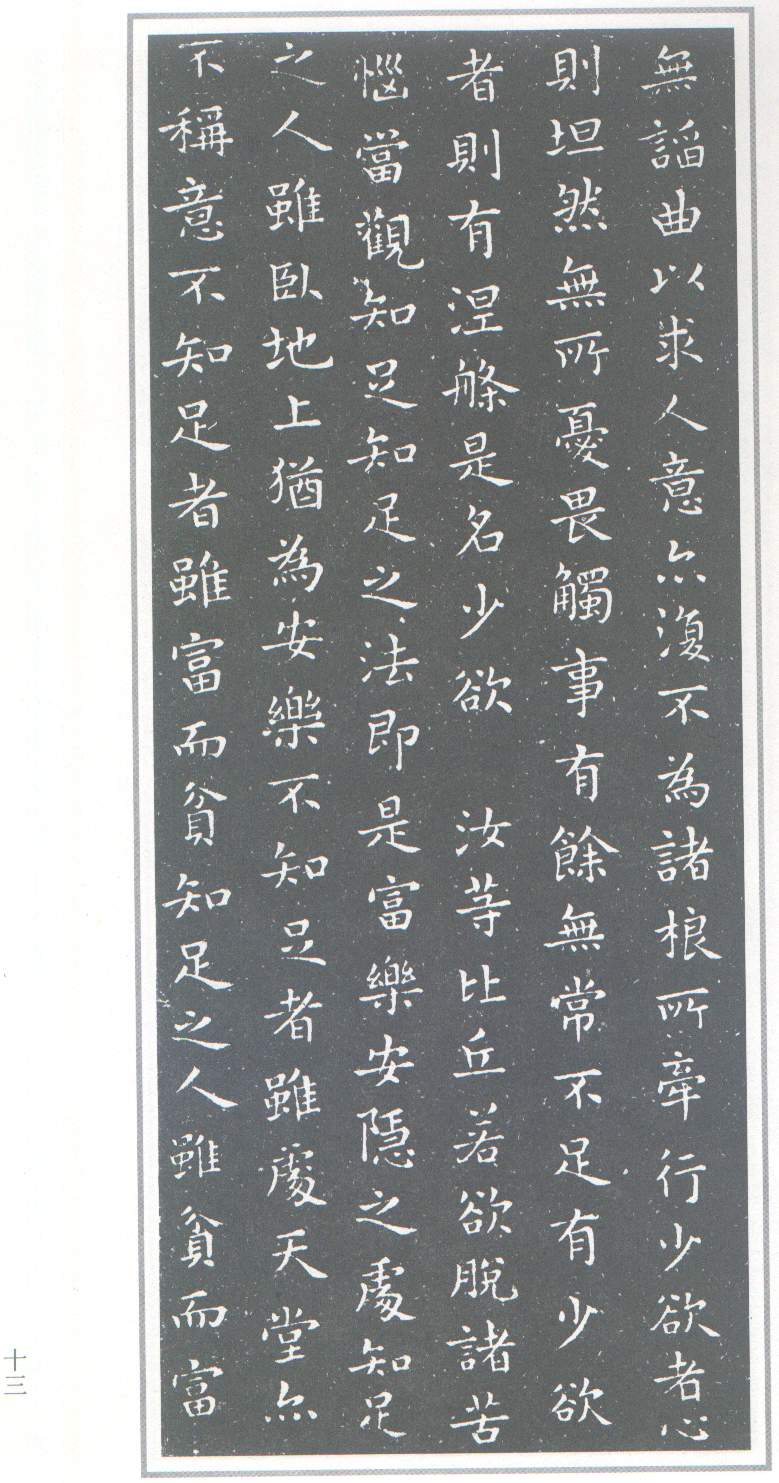 無謟曲以求人意亦復不為諸根所牽行少欲者心
則坦然無所憂畏觸事有餘無常不足有少欲
者則有涅槃是名少欲　汝等比丘若欲脫諸苦
惱當觀知足知足之法即是富樂安隱之處知足
之人雖臥地上猶為安樂不知足者雖處天堂亦
不稱意不知足者雖富而貧知足之人雖貧而富
十三